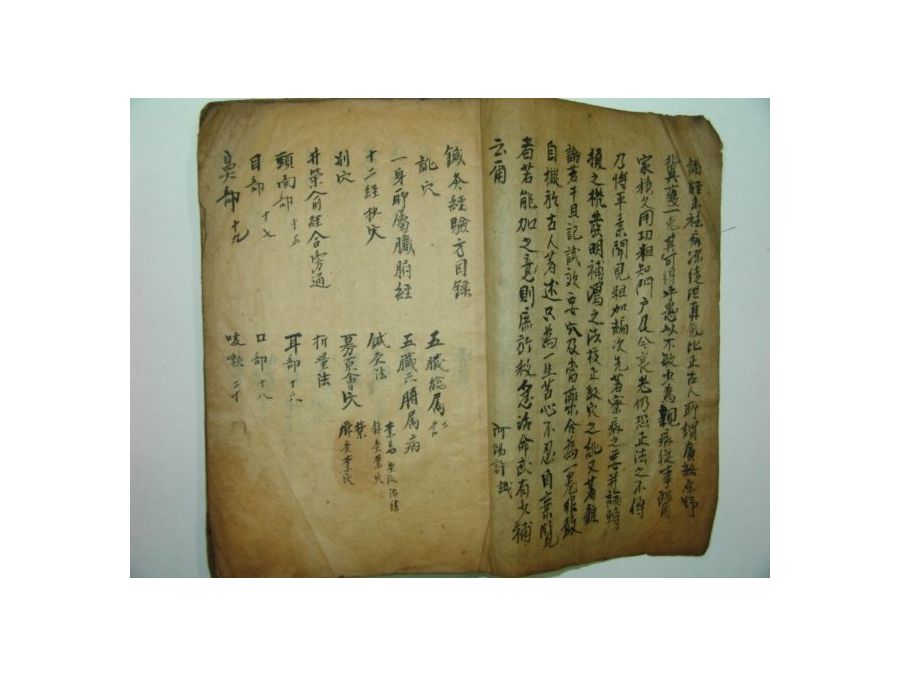 病深徒泄真氣此正古人所謂廣絡原野
冀獲一兎其可得乎愚以不敏少為親病從事醫
家積久用功粗知門户及今衰老仍恐正法之不傳
乃將平素聞見粗加編次先著察病之要并論轉
換之機發明補瀉之法校正取穴之訛又著雜
論若干且記試效要穴及當藥合為一卷非敢
自擬於古人著述只為一生苦心不忍自棄覽
者若能加之意則庶於救急活命或有少補
云爾
河陽許識
鍼灸經驗方目錄
訛穴 五臟總屬
一身所屬臟腑經 五臟六腑屬病
十二經抄穴 鍼灸法
別穴 募原會穴
井滎俞經合旁通 折量法
頭面部 十五 耳部 十六
目部 十七 口部 十八
鼻部 十九 咳嗽 二十